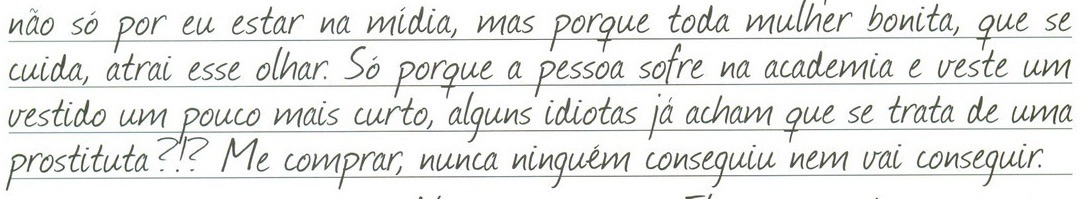 não só por eu estar na mídia, mas porque toda mulher bonita, que se
cuida, atrai esse olhar. Só porque a pessoa sofre na academia e veste um
vestido um pouco mais curto, alguns idiotas já acham que se trata de uma
prostituta?!? Me comprar, nunca ninguém conseguiu nem vai conseguir.